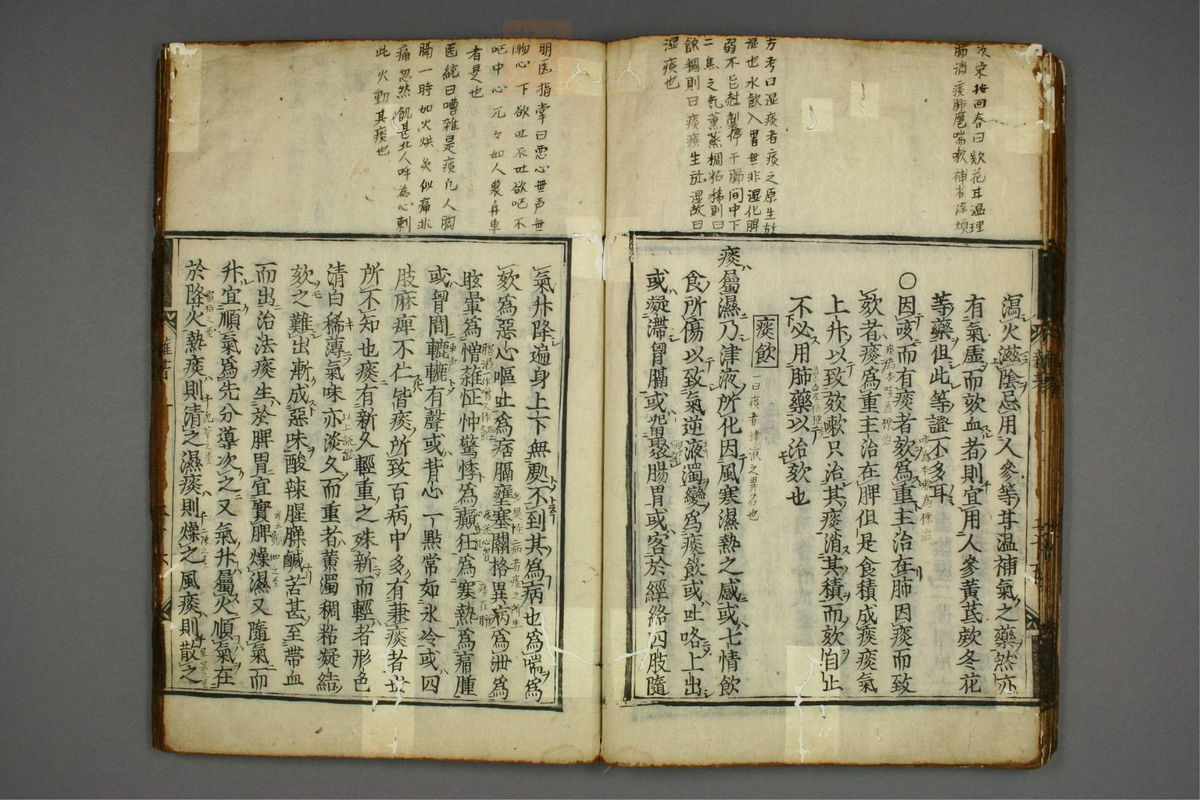 瀉火滋陰忌用人參等甘温補氣之藥然亦
有氣虛而欬血者則宜用人參黃芪欵冬花
等藥但此等證不多耳
○因咳而有痰者欬為重主治在肺因痰而致
欬者痰為重主治在脾但是食積成痰痰氣
上升以致欬嗽只治其痰消其積而欬自止
不必用肺藥以治欬也
痰飲
一曰痰者津液之異名也
痰屬濕乃津液所化因風寒濕熱之感或七情飲
食所傷以致氣逆液濁變為痰飲或吐咯上出
或凝滯胷膈或留聚腸胃或客於經絡四肢隨
氣升降遍身上下無處不到其為病也為喘為
欬為惡心嘔吐為痞膈壅塞關格異病為泄為
眩暈為憎雜怔忡驚悸為癲狂為寒熱為痛腫
或胷間轆轆有聲或背心一點常如氷冷或四
肢麻痺不仁皆痰所致百病中多有兼痰者世
所不知也痰有新久輕重之殊新而輕者形色
清白稀薄氣味亦淡久而重者黃濁稠粘凝結
欬之難出漸成惡味酸辣腥臊鹹苦甚至帶血
而出治法痰生於脾胃宜實脾燥濕又隨氣而
升宜順氣為先分導次之又氣升屬火順氣在
於降火熱痰則清之濕痰則燥之風痰則散之
方考曰湿痰者痰之原生於
湿也水飲入胃無非湿化脾
二焦之氣薰蒸稠粘稀則曰
飲稠則曰痰痰生於湿故曰
湿痰也
明医指掌曰惡心無声無
物心下欲吐不吐欲吐不
吐中心兀々如人畏舟車
者是也
医統曰嘈雜是痰凡人胸
膈一時如火烘炙似痛非
痛忽然飢甚北人呼為心剌
此火動其痰也